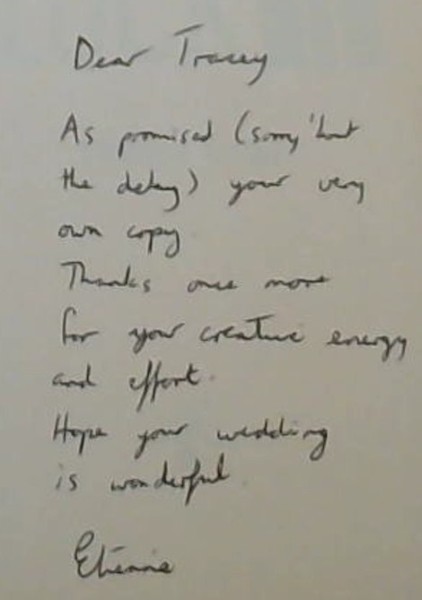 Dear Tracey
As promised (sorry 'bout
the delay) your very
own copy
Thanks once more
for your creative energy
and effort.
Hope your wedding
is wonderful
Etienne